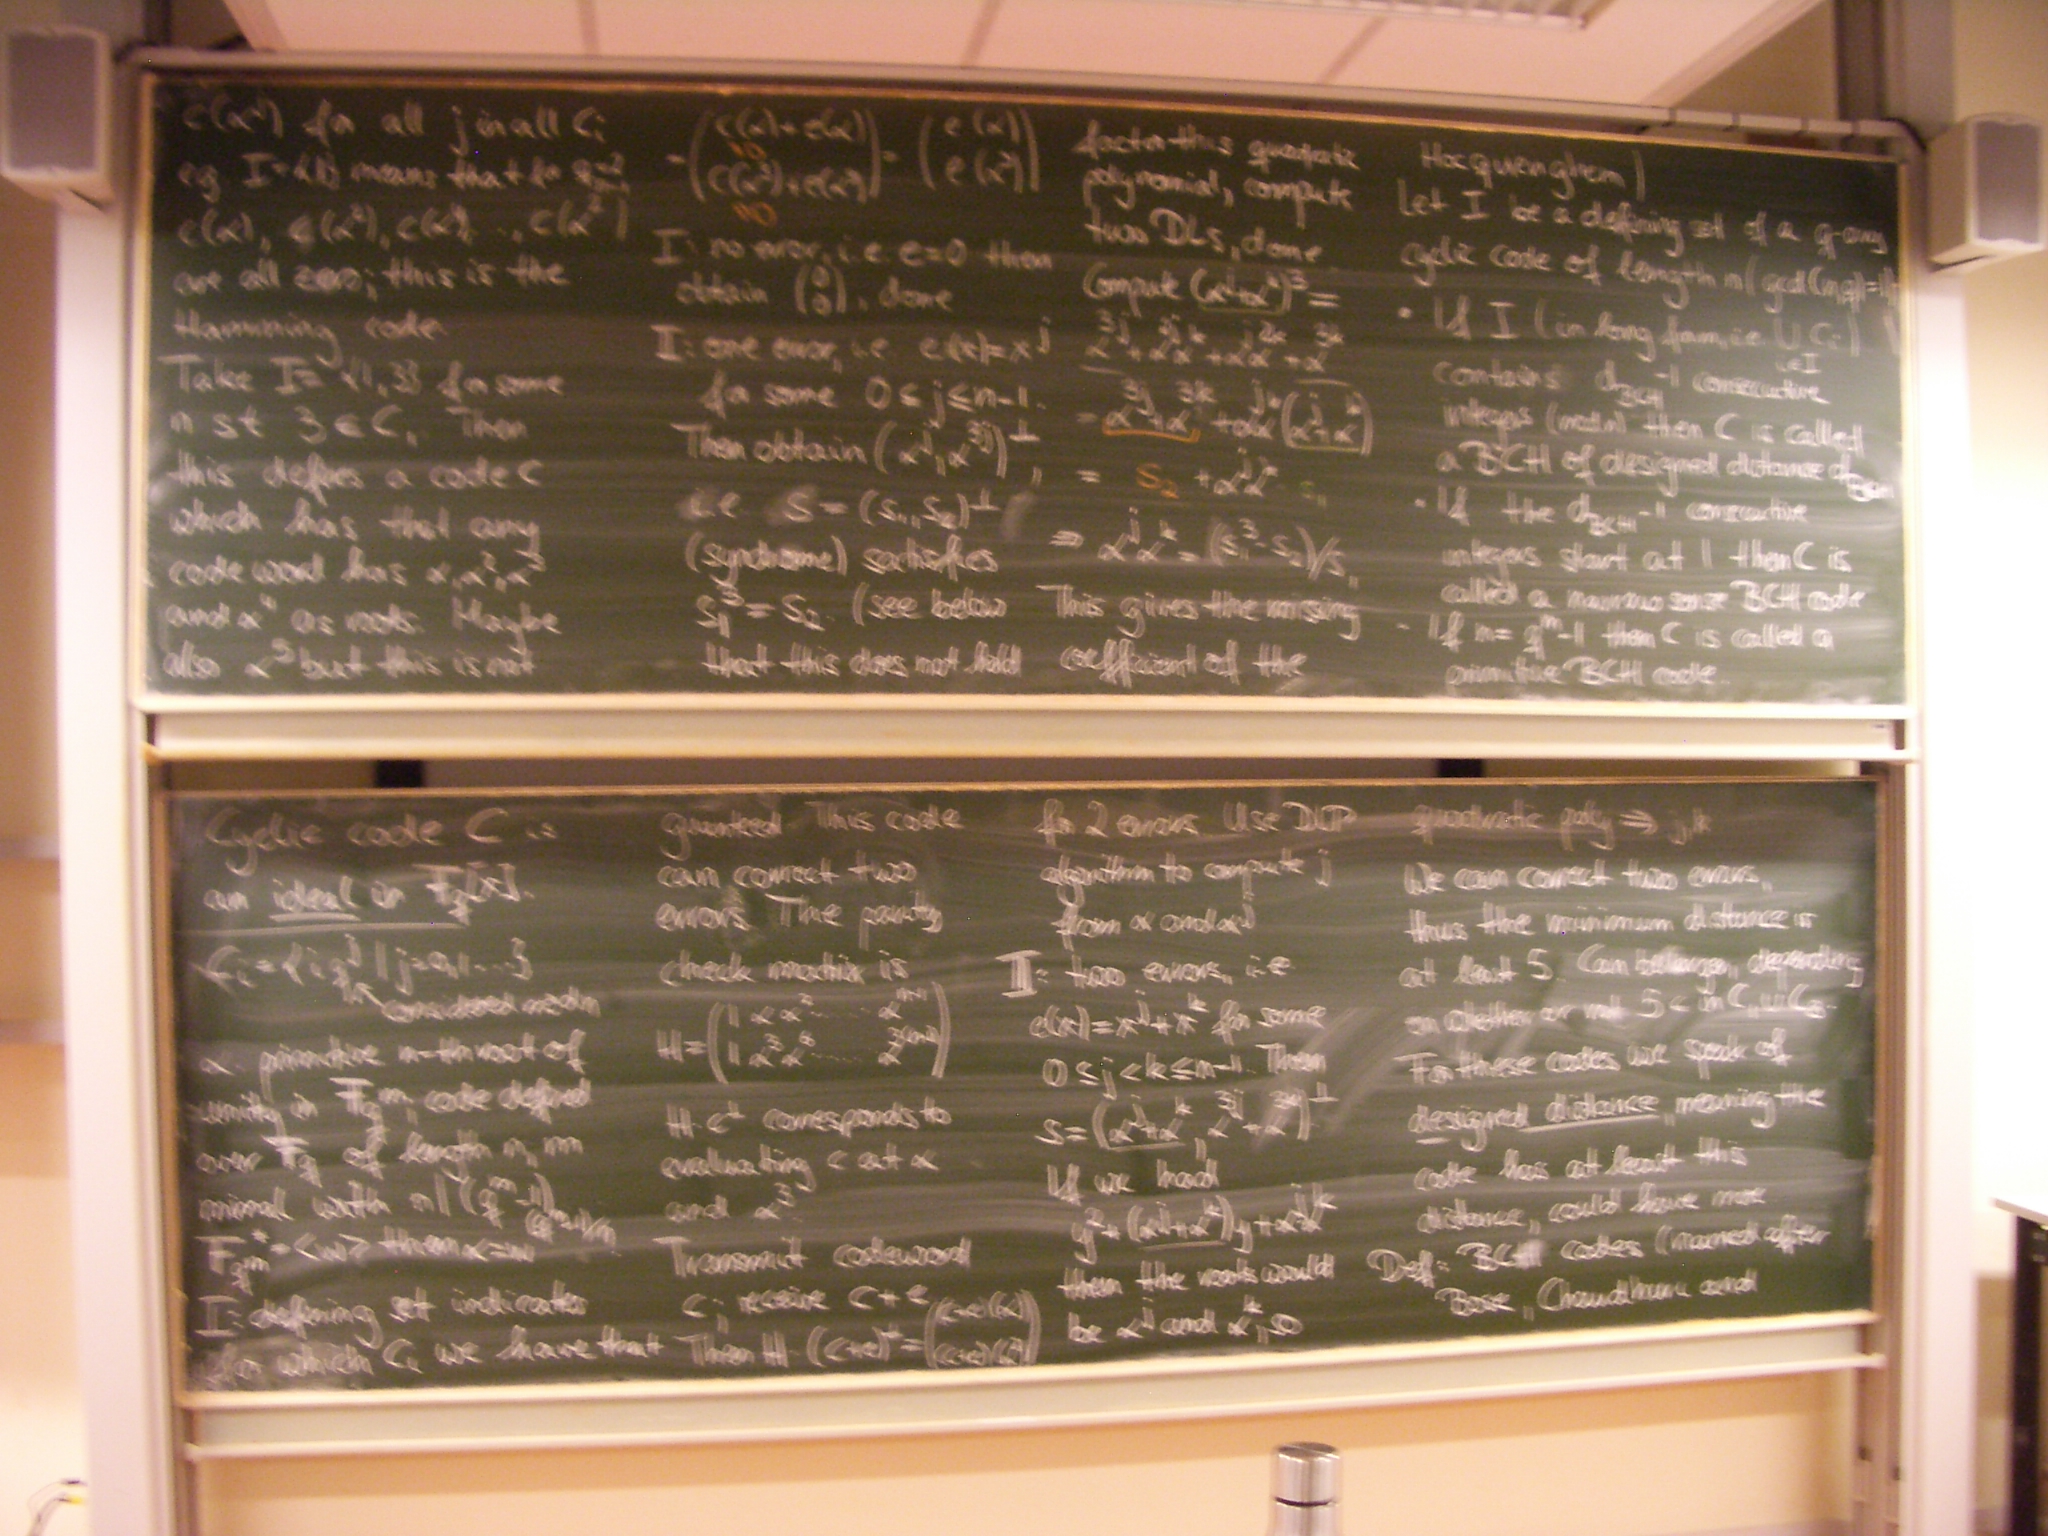 c(α^j) for all j in all C_i
eg. I={1} means that for q=2
c(α), c(α²), c(α⁴), ..., c(α
are all zero; this is the
Hamming code
Take I={1,3} for some
n st 3 ∉ C₁. Then
this defines a code C
which has that any
code word has α, α², α³
and α⁴ as roots. Maybe
also α⁵ but this is not
=(c(α)+e(α)) = (e(α))
(c(α³)+e(α³)) (e(α³))
I: no error, i.e. e=0 then
obtain (0 0), done
II: one error, i.e. e(x)=x^j
for some 0≤j≤n-1.
Then obtain (α^j, α^3j)^⊥,
i.e. S=(s₁,s₂)^⊥
(syndrome) satisfies
s₁³=s₂ (see below
that this does not hold
factor this quadratic
polynomial, compute
two DLs, done
Compute (α^j+α^k)³=
α^3j+α^2jα^k+α^jα^2k+α^3k
=α^3j+α^3k+α^jα^k(α^j+α^k)
= s₂ +α^jα^k s₁
⇒ α^jα^k=(s₁³-s₂)/s₁
This gives the missing
coefficient of the
Hocquenghem)
Let I be a defining set of a q-ary
cyclic code of length n (gcd(n,q)=1)
• If I (in long form, i.e. ∪ C_i)
i∈I
contains d_BCH-1 consecutive
integers (mod n) then C is called
a BCH of designed distance d_BCH
• If the d_BCH-1 consecutive
integers start at 1 then C is
called a narrow sense BCH code
- If n=q^m-1 then C is called a
primitive BCH code.
Cyclic code C is
an ideal in F_q[x].
C_i={iq^j | j=0,1...}
considered mod n
α primitive n-th root of
unity in F_q^m, code defined
over F_q of length n, m
minimal with n|(q^m-1)
F_q^m*=<w> then α=w^(q^m-1)/n
I: defining set indicates
for which C_i we have that
granted This code
can correct two
errors. The parity
check matrix is
H=(1 α α² ..... α^n-1
1 α³ α⁶ ..... α^3(n-1))
H·c^⊥ corresponds to
evaluating c at α
and α³.
Transmit codeword
c; receive c+e
Then H·(c+e)^⊥=((c+e)(α)
(c+e)(α³))
for 2 errors. Use DLP
algorithm to compute j
from α and α^j
III: two errors, i.e.
e(x)=x^j+x^k for some
0≤j<k≤n-1. Then
S=(α^j+α^k, α^3j+α^3k)^⊥
If we had
y²+(α^j+α^k)y+α^jα^k
then the roots would
be α^j and α^k, so
quadratic poly ⇒ j,k
We can correct two errors,
thus the minimum distance is
at least 5. Can be larger, depending
on whether or not 5 is in C₁∪C₃.
For these codes we speak of
designed distance, meaning the
code has at least this
distance, could have more
Def: BCH codes (named after
Bose, Chaudhuri and